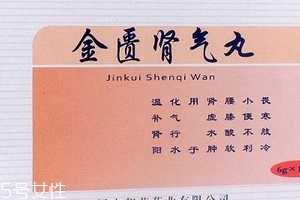 金匮肾气丸
Jinkui Shenqi Wan
温补肾阳
化气行水
用于
肾虚水肿
腰膝酸软
小便不利
畏寒肢冷
6g×
5号女性
药业有限公司